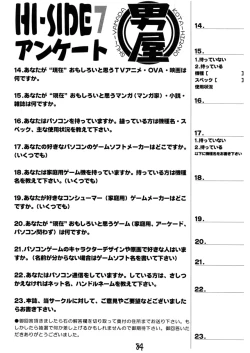 HI-SIDE7
アンケート
男屋
14.あなたが“現在”おもしろいと思うTVアニメ・OVA・映画は
何ですか。
15.あなたが“現在”おもしろいと思うマンガ(マンガ家)・小説・
雑誌は何ですか。
16.あなたはパソコンを持っていますか。持っている方は機種名・ス
ペック、主な使用状況を教えて下さい。
17.あなたの好きなパソコンのゲームソフトメーカーはどこですか。
(いくつでも)
18.あなたは家庭用ゲーム機を持っていますか。持っている方は機種
名を教えて下さい。(いくつでも)
19.あなたが好きなコンシューマー(家庭用)ゲームメーカーはどこ
ですか。(いくつでも)
20.あなたが“現在”おもしろいと思うゲーム(家庭用、アーケード、
パソコン問わず)は何ですか。
21.パソコンゲームのキャラクターデザインや原画で好きな人はいま
すか。(名前が分からない場合はゲームソフト名を書いて下さい)
22.あなたはパソコン通信をしていますか。している方は、さしつ
かえなければネット名、ハンドルネームを教えて下さい。
23.本誌、当サークルに対して、ご意見やご要望などございました
らお書き下さい。
14.
15.
16.
1.持っていない
2.持っている
機種【 】
スペック【 】
使用状況
17.
18.
1.持っていない
2.持っている
19.
20.
21.
22.
23.
34